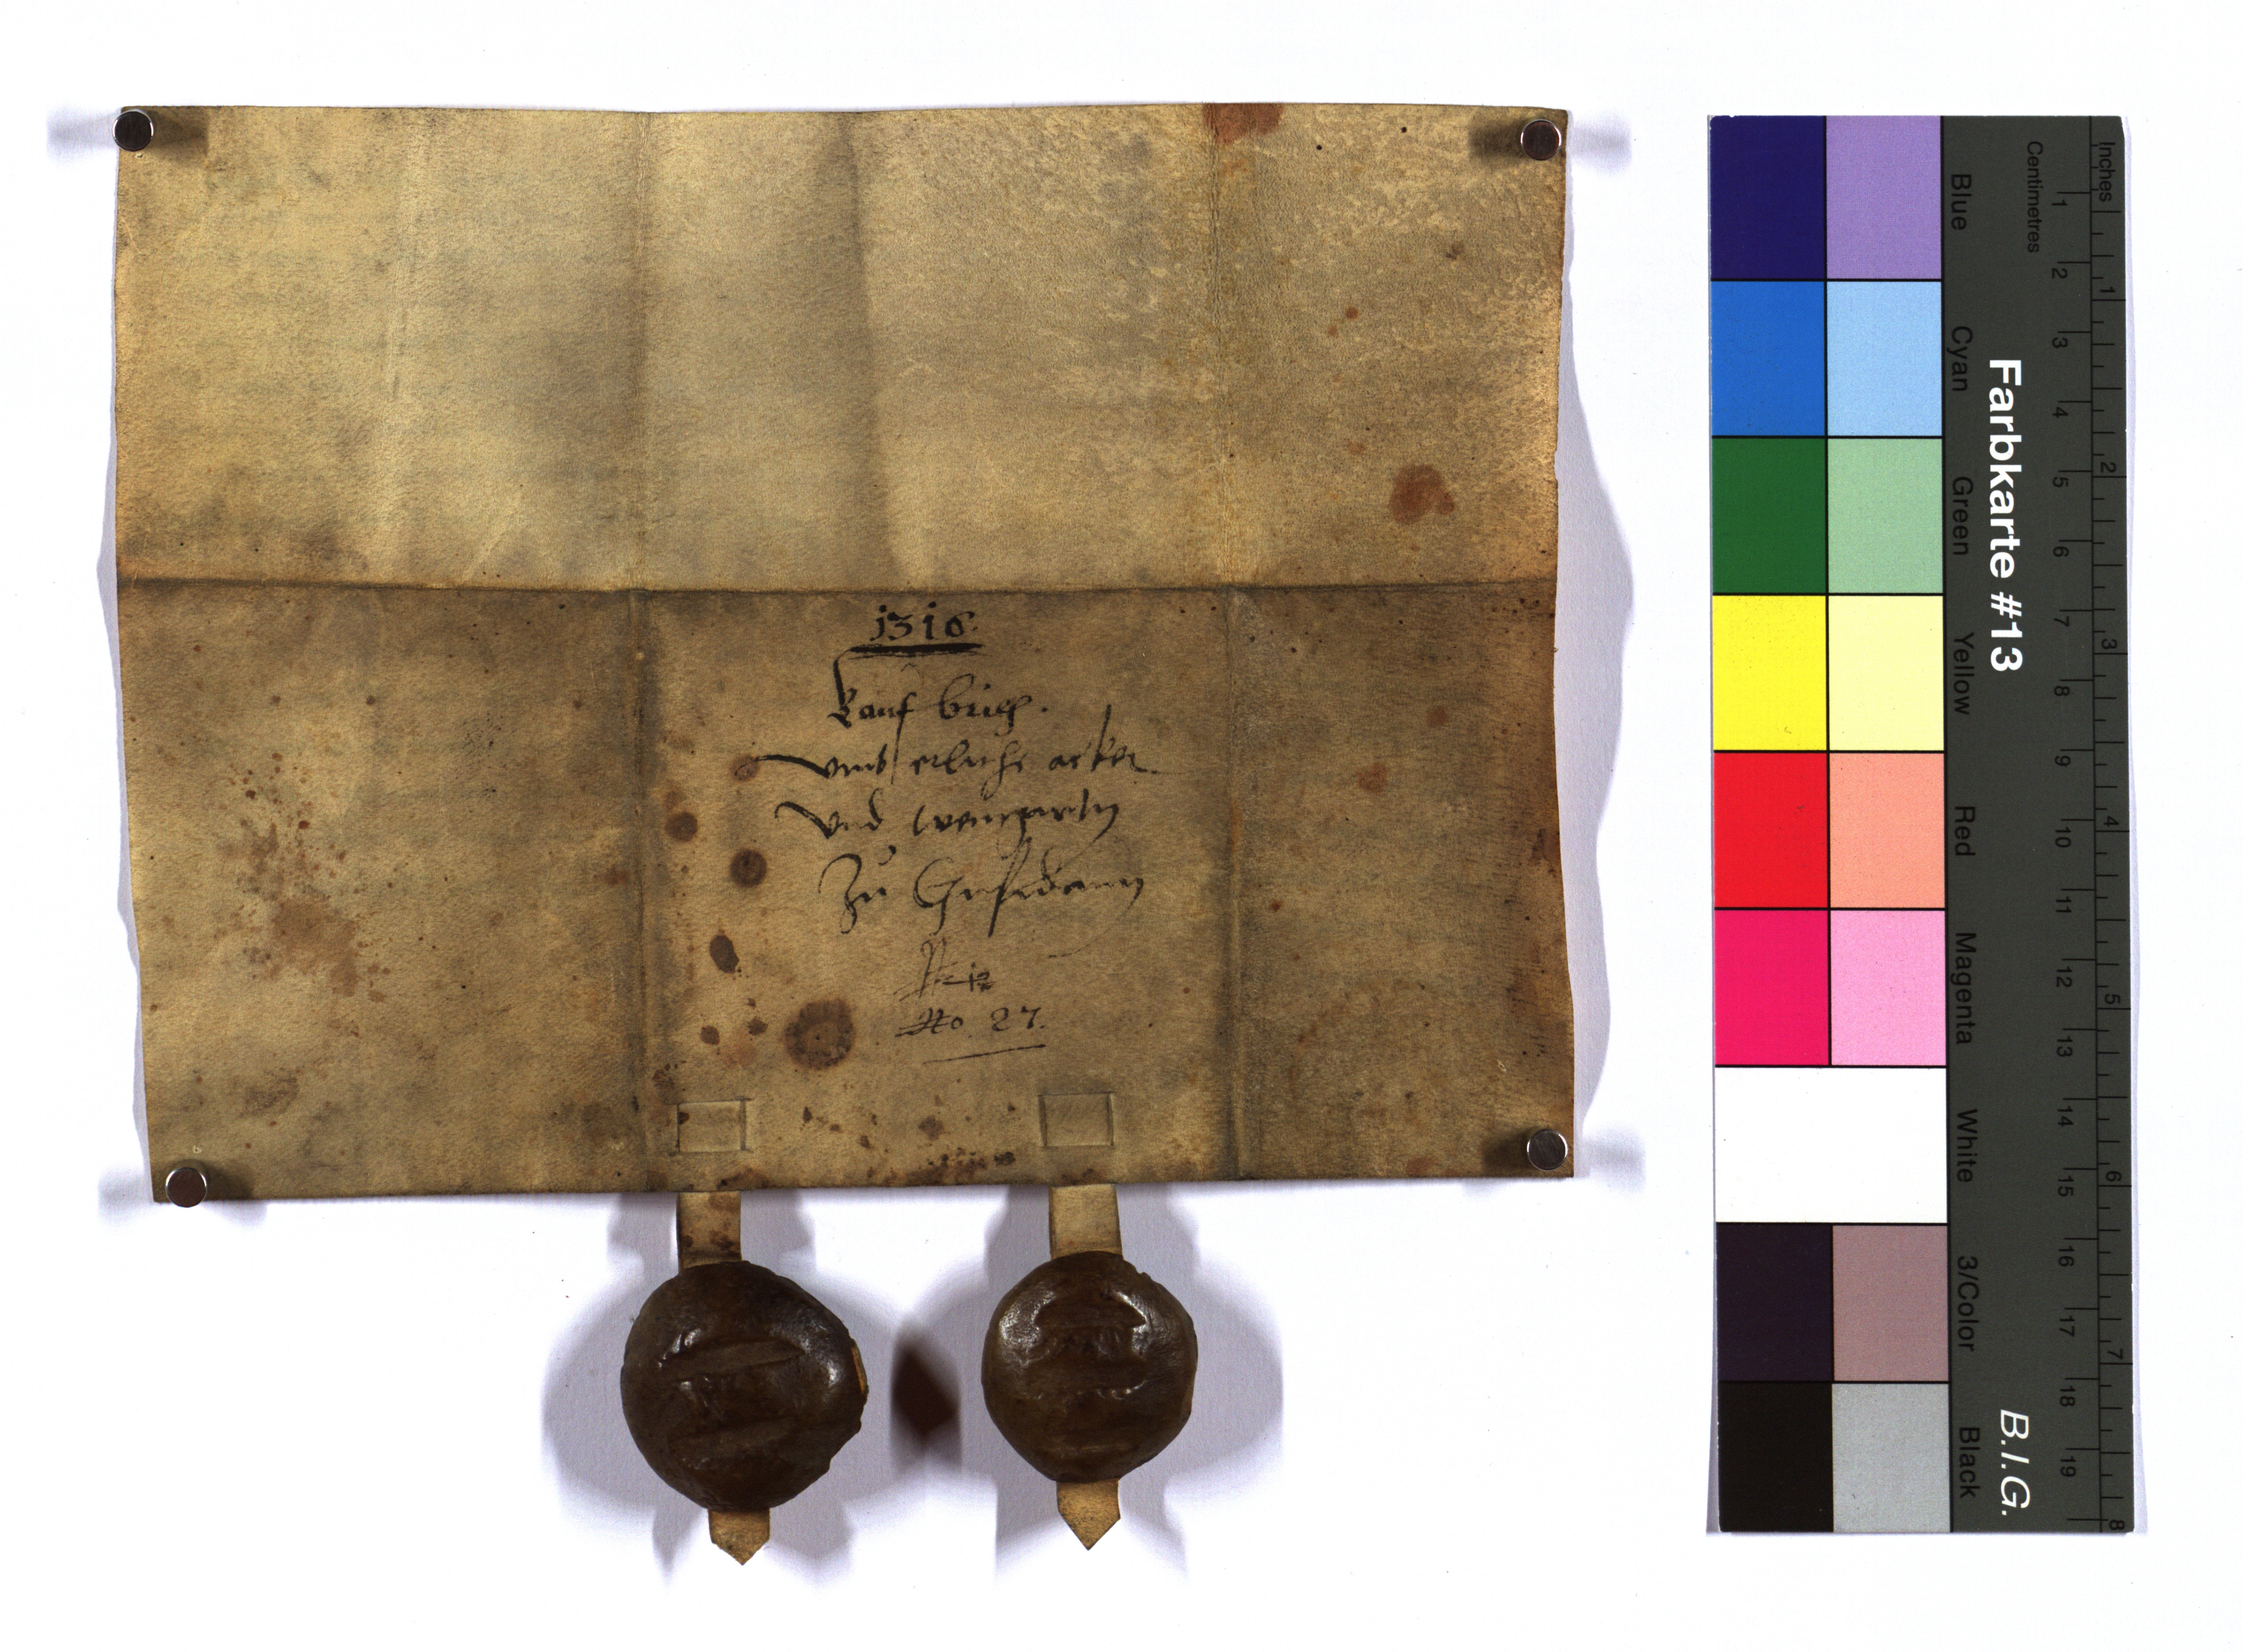 1316.
kauf brieff.
vmb etliche acker
vnd weingartn
Zu
No. 27.
Inches
Centimetres
1 2 3 4 5 6 7 8 9 10 11 12 13 14 15 16 17 18 19
1 2 3 4 5 6 7 8
Farbkarte #13
B.I.G.
Blue Cyan Green Yellow Red Magenta White 3/Color Black